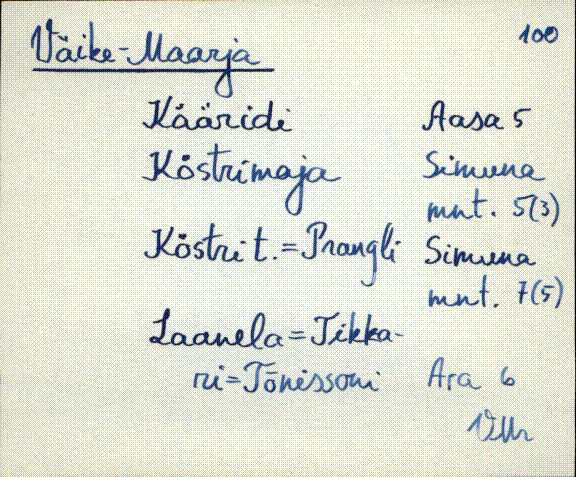 Väike-Maarja 100
Kääridi Aasa 5
Köstrimaja Simuna
mnt. 5(3)
Köstri t. = Prangli Simuna
mnt. 7(5)
Laanela = Tikka-
ri = Tõnissoni Ara 6